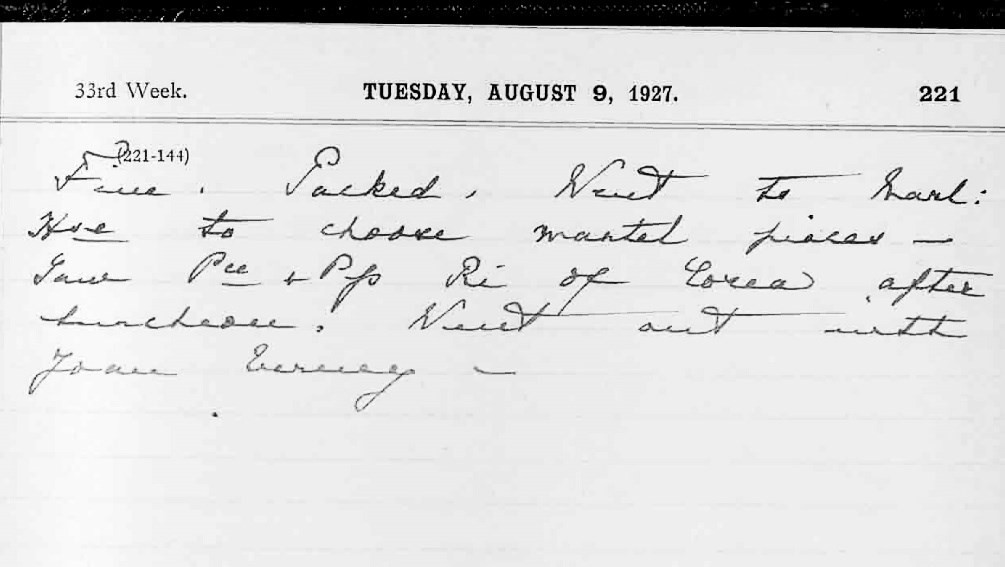 33rd Week. TUESDAY, AUGUST 9, 1927. 221
(221-144)
Fine. Packed. Went to Marl:
Hse to choose mantel pieces —
Saw Pce & Pss Ri of Corea after
luncheon. Went out with
Joan Verney —